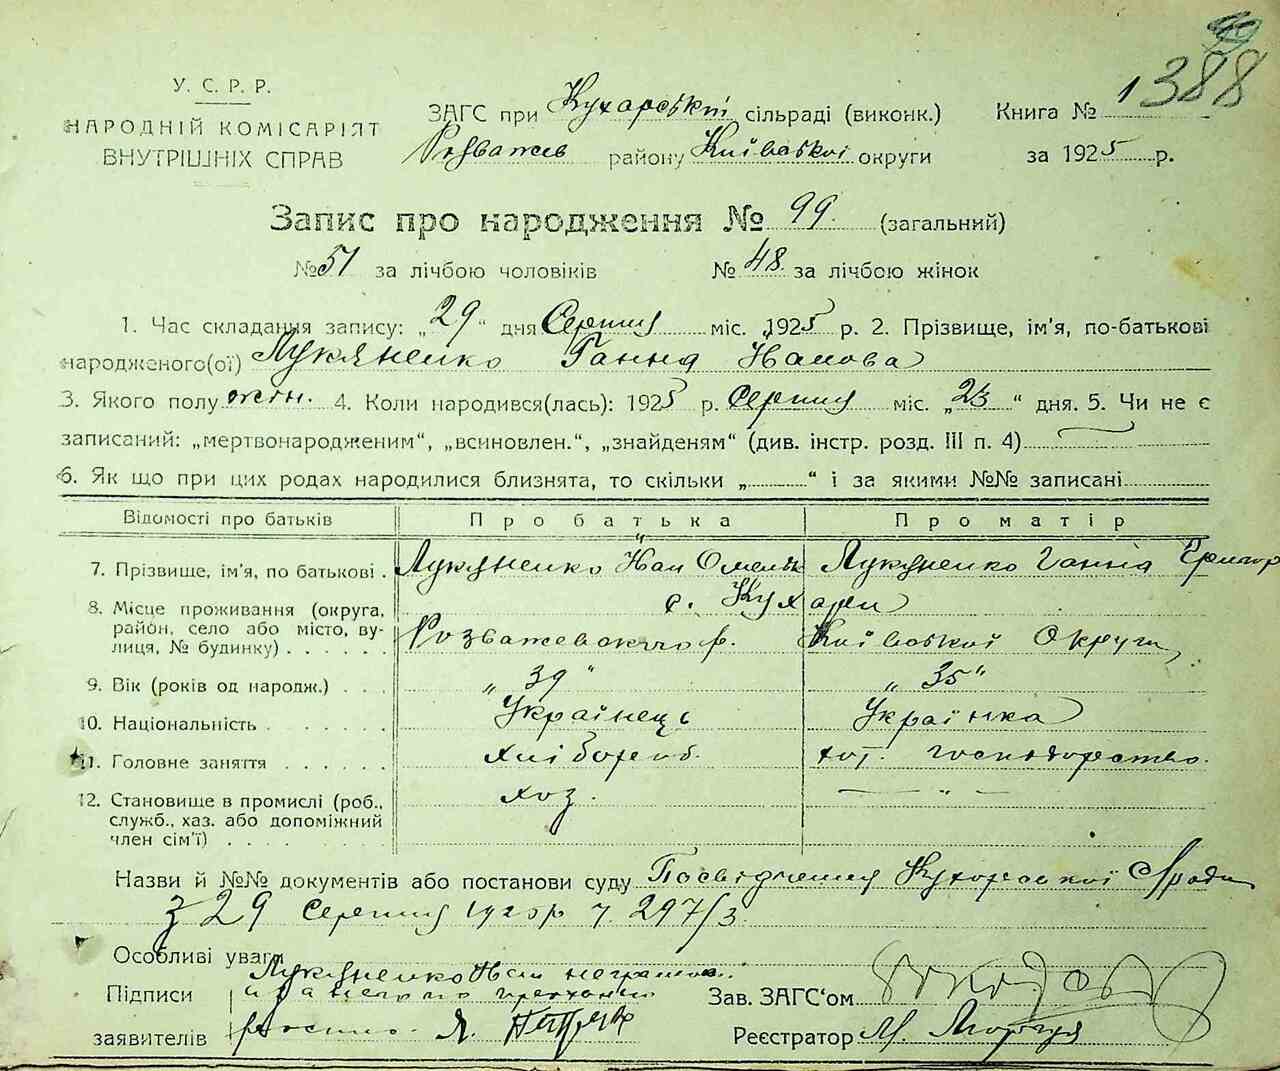 49
1388
У. С. Р. Р.
НАРОДНІЙ КОМІСАРІЯТ
ВНУТРІШНІХ СПРАВ
ЗАГС при Кухарській сільраді (виконк.)
Розважев району Київської округи
Книга №
за 1925 р.
Запис про народження № 99. (загальний)
№ 51 за лічбою чоловіків № 48 за лічбою жінок
1. Час складання запису: „29" дня Серпня міс. 1925 р. 2. Прізвище, ім'я, по-батькові
народженого(ої) Лукяненко Ганна Іванова
3. Якого полу жін. 4. Коли народився(лась): 1925 р. Серпня міс. „23" дня. 5. Чи не є
записаний: „мертвонародженим", „всиновлен.", „знайденям" (див. інстр. розд. III п. 4)
6. Як що при цих родах народилися близнята, то скільки „ " і за якими №№ записані
Відомості про батьків Про батька Про матір
7. Прізвище, ім'я, по батькові . Лукяненко Іван Омельк Лукяненко Ганна
8. Місце проживання (округа, с. Кухари
район, село або місто, ву- Розважевського р. Київської Округи
лиця, № будинку) . . . . .
9. Вік (років од народж.) . . . „39" „35"
10. Національність . . . . . . Українець Українка
11. Головне заняття . . . . . . хлібороб. господарство.
12. Становище в промислі (роб., хоз. — „ —
служб., хаз. або допоміжний
член сім'ї) . . . . . . . .
Назви й №№ документів або постанови суду Посвідчення Кухарської С/ради
з 29 Серпня 1925 р ч. 297/3.
Особливі уваги
Лукяненко Іван неграмотн.
Підписи
заявителів
Зав. ЗАГС'ом
Реєстратор М.